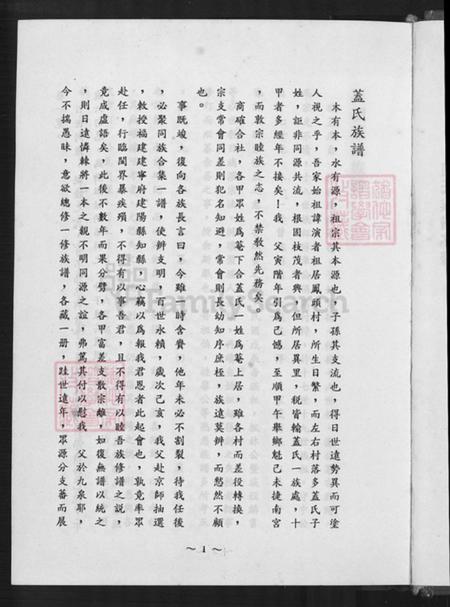 蓋氏族譜
木有本，水有源，祖宗其本源也，子孫其支流也，得日世遠勢異而可塗
人視之乎，吾家始祖諱演者祖居鳳頭村，所生日繁，而左右村落多蓋氏子
姓，詎非同源共流，根固枝茂者興，但所居異里，稅皆翰蓋氏一族處，十
甲者多經年不接矣！我　父寅階年引為己憾，至順甲午舉鄉魁己未捷南宮
，而敦宗睦族之志，不禁敦然先務矣。
商確合社，各甲眾姓為菴下合蓋氏一姓為菴上居，雖各村而差役轉換，
宗支常會同差則犯名知避，常會則長幼知序庶極，族遠莫辨，而愁然不顧
也。
事既竣，復向各族長言曰，今雖一時含賚，他年未必不割裂，待我任後
，必聚同族合集一譜，使辨支明，百世永賴，歲次己亥，我父赴京師抽選
，教授福建建寧府建陽縣知縣，心竊以為報我君恩者此起會也，孰竟率眾
赴任，行臨閩界暴疾殞，不得有以事吾君，且不得有以睦吾族修譜之說，
竟成虛語矣，此後不數年而果分劈，各甲富差支散宗離，如復無譜以統之
，則日遠憐棘將一本之親不明同源之誼，弗篤其付以慰我　父於九泉耶，
今不揣愚昧，意欲總修一修族譜，各藏一册，跬世遠年，眾源分支蕃而展
～1～
FamilySearch